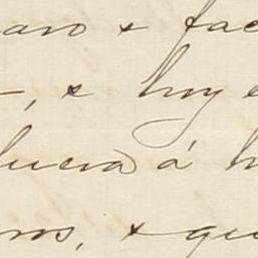 aro & fac
, & hoy e
lucia á h
ros, & qu